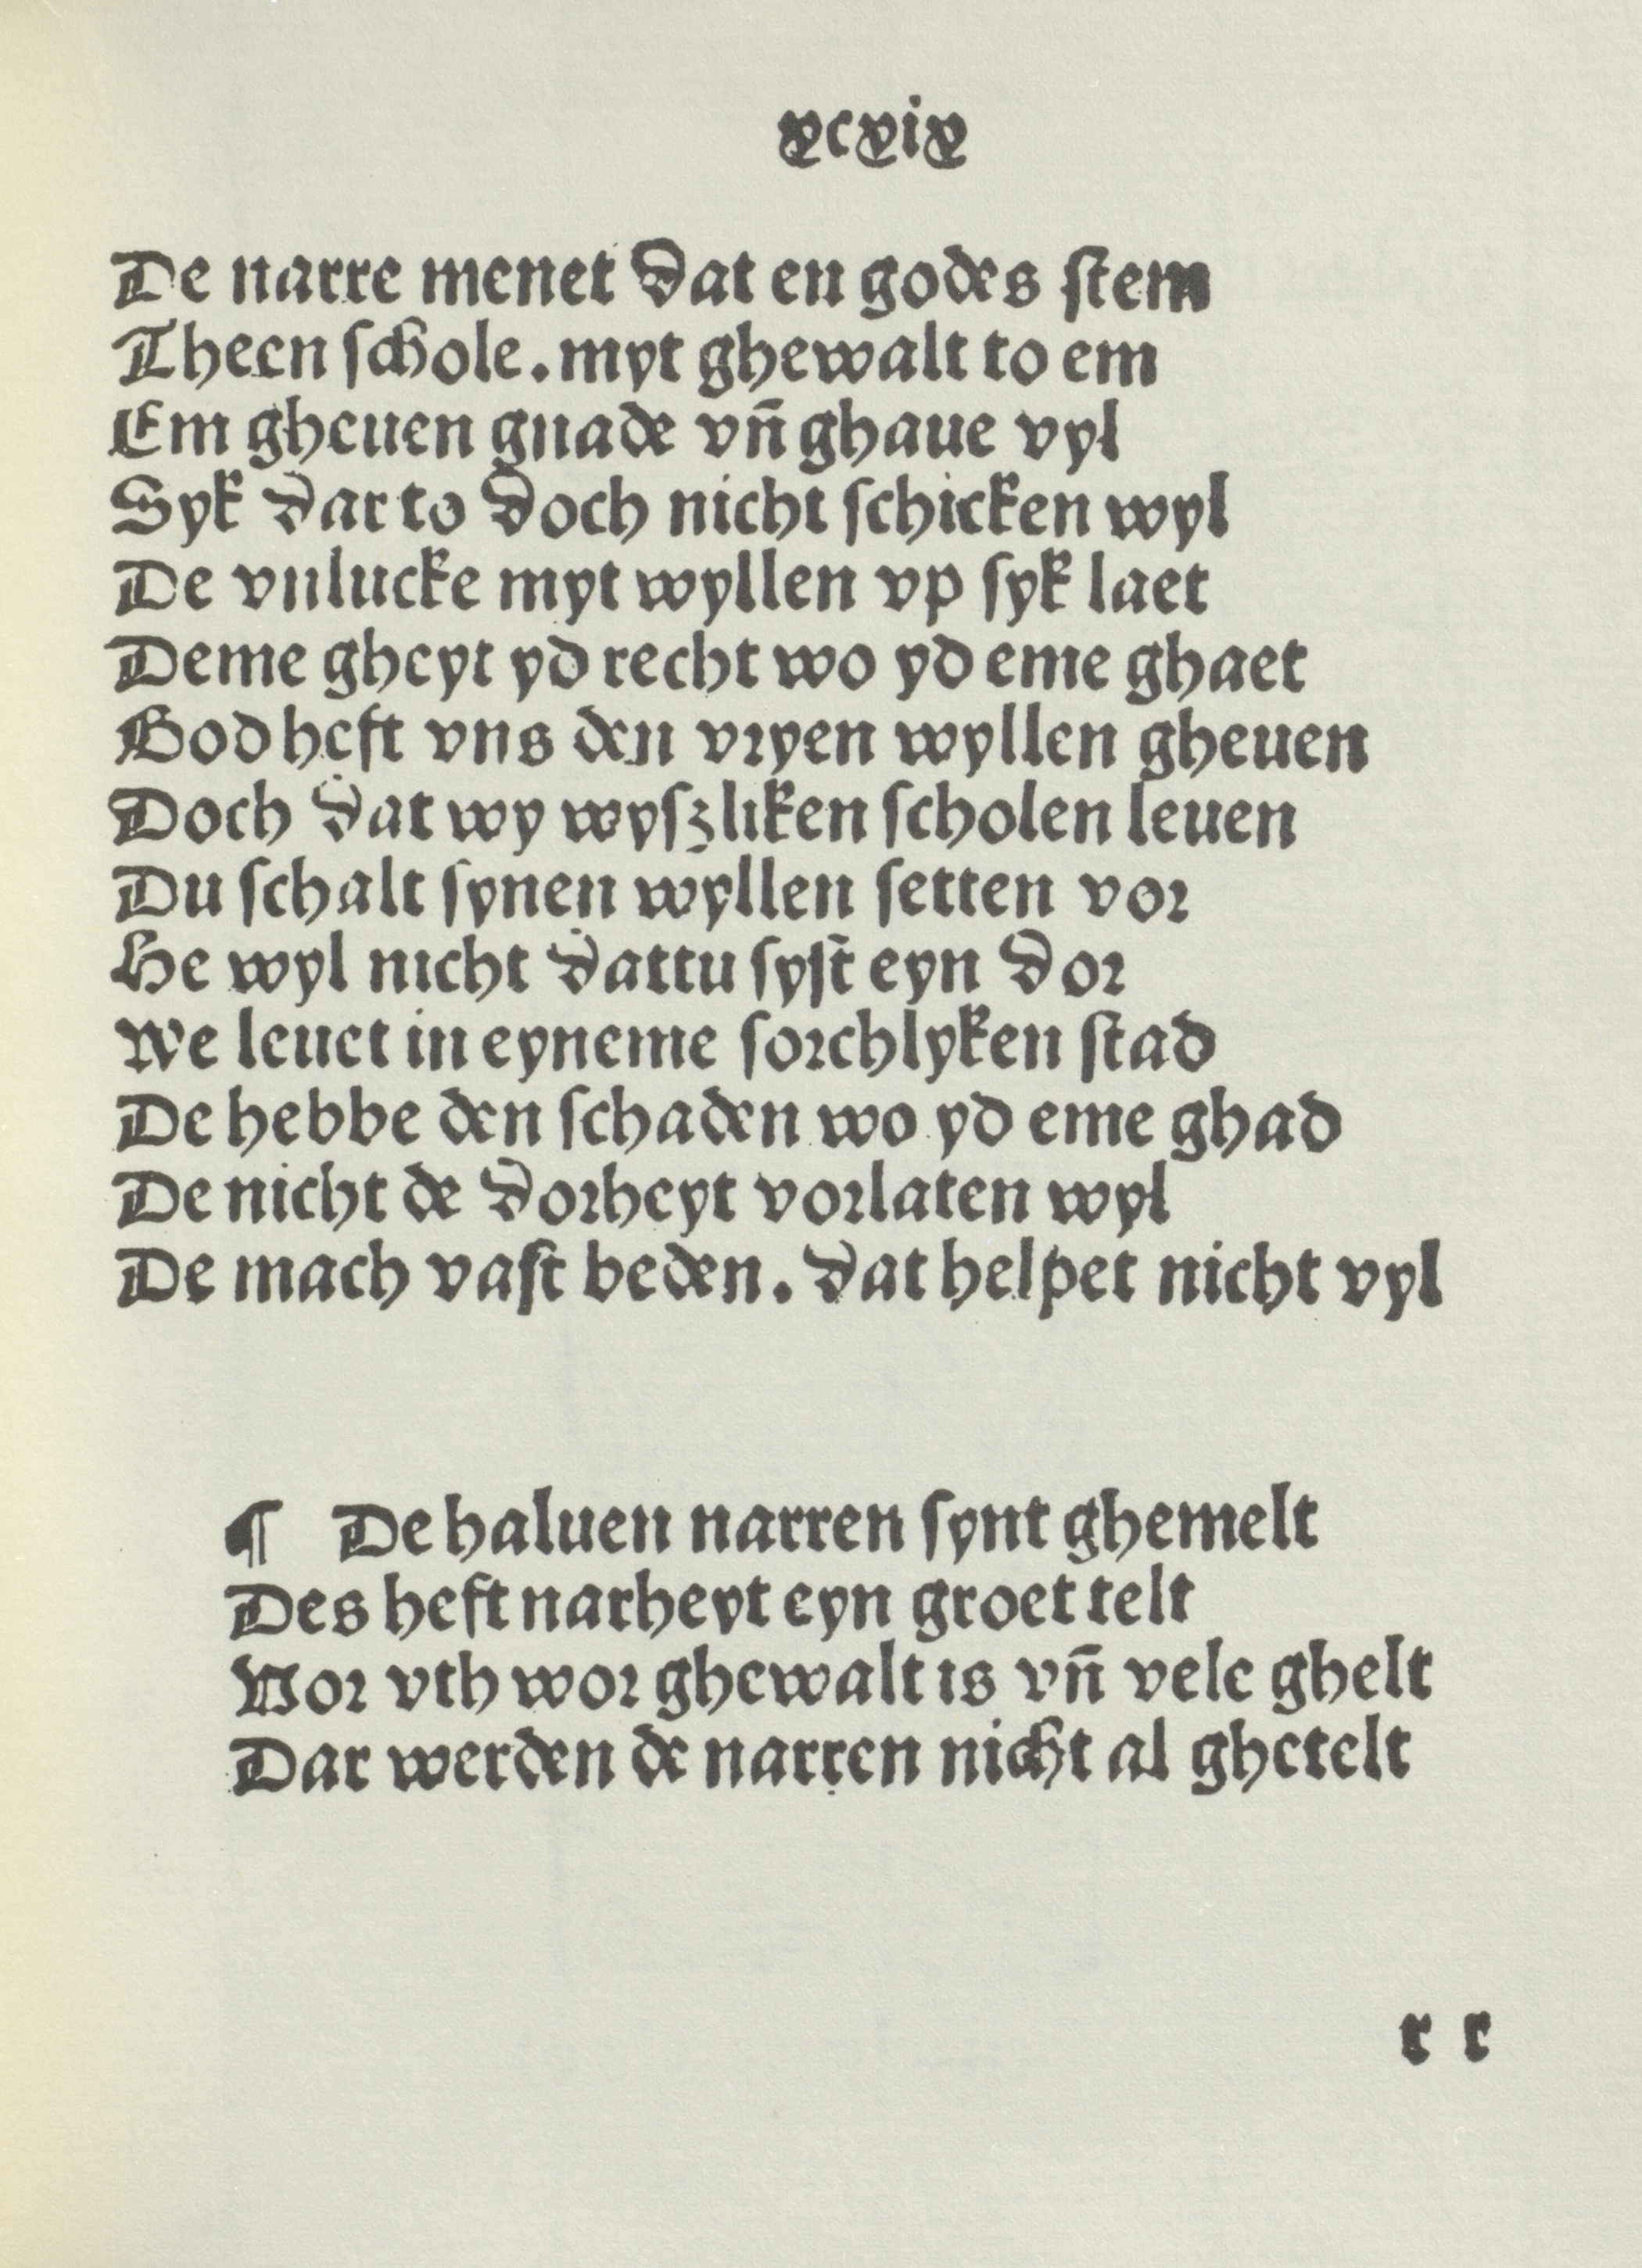 xcxix
De narre menet dat en godes ſtem
Theen ſchole. myt ghewalt to em
Em gheuen gnade vn̄ ghaue vyl
Syk dar to doch nicht ſchicken wyl
De vnlucke myt wyllen vp ſyk laet
Deme gheyt yd recht wo yd eme ghaet
God heft vns den vryen wyllen gheuen
Doch dat wy wyſzliken ſcholen leuen
Du ſchalt ſynen wyllen ſetten vor
He wyl nicht dattu ſyſt eyn dor
We leuet in eyneme ſorchlyken ſtad
De hebbe den ſchaden wo yd eme ghad
De nicht de dorheyt vorlaten wyl
De mach vaſt beden. dat helpet nicht vyl
¶ De haluen narren ſynt ghemelt
Des heft narheyt eyn groet telt
Vor vth wor ghewalt is vn̄ vele ghelt
Dar werden de narren nicht al ghetelt
r r